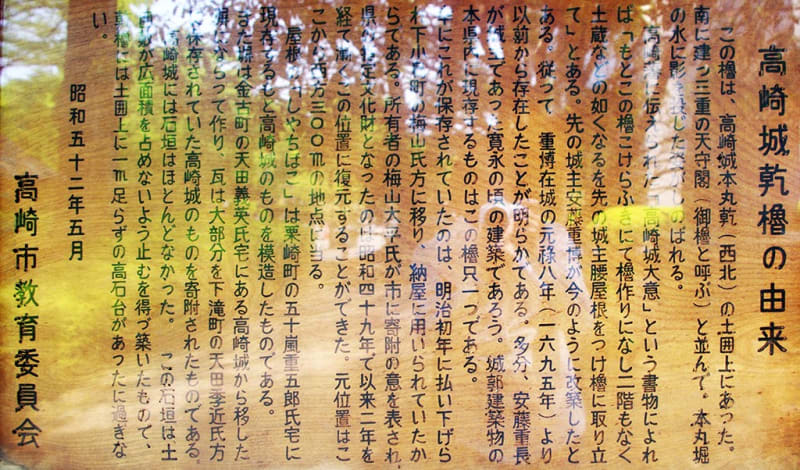 高崎城乾櫓の由来
この櫓は、高崎城本丸乾（西北）の土囲上にあった。
南に建つ三重の天守閣（御櫓と呼ぶ）と並んで。本丸堀
の水に影を した しのばれる。
高崎 に伝えられた「高崎城大意」という書物によれ
ば「もとこの櫓こけらふきにて櫓作りになし二階もなく
土蔵などの如くなるを先の城主腰屋根をつけ櫓に取り立
て」とある。先の城主安藤重博が今のように改築したと
ある。従って、重博在城の元祿八年（一六九五年）より
以前から存在したことが明らかである。多分、安藤重長
が城主であった寛永の頃の建築であろう。城郭建築物の
本県内に現存するものはこの櫓只一つである。
幸にこれが保存されていたのは、明治初年に払い下げら
れ下小鳥町の梅山氏方に移り、納屋に用いられていたか
らである。所有者の梅山太平氏が市に寄附の意を表され、
県 重文化財となったのは昭和四十九年で以来二年を
経て漸くこの位置に復元することができた。元位置はこ
こから西方三〇〇mの地点に当る。
屋根の しやちほこ」は栗崎町の五十嵐重五郎氏宅に
現存するもと高崎城のものを模造したものである。
また塀は金古町の天田義英氏宅にある高崎城から移した
塀にならって作り、瓦は大部分を下滝町の天田季近氏方
に保存されていた高崎城のものを寄附されたものである。
高崎城には石垣はほとんどなかった。この石垣は土
囲敷が広面積を占めないよう止むを得づ築いたもので、
乾櫓には土囲上に一m足らずの高石台があったに過ぎな
い。
昭和五十二年五月
高崎市教育委員会